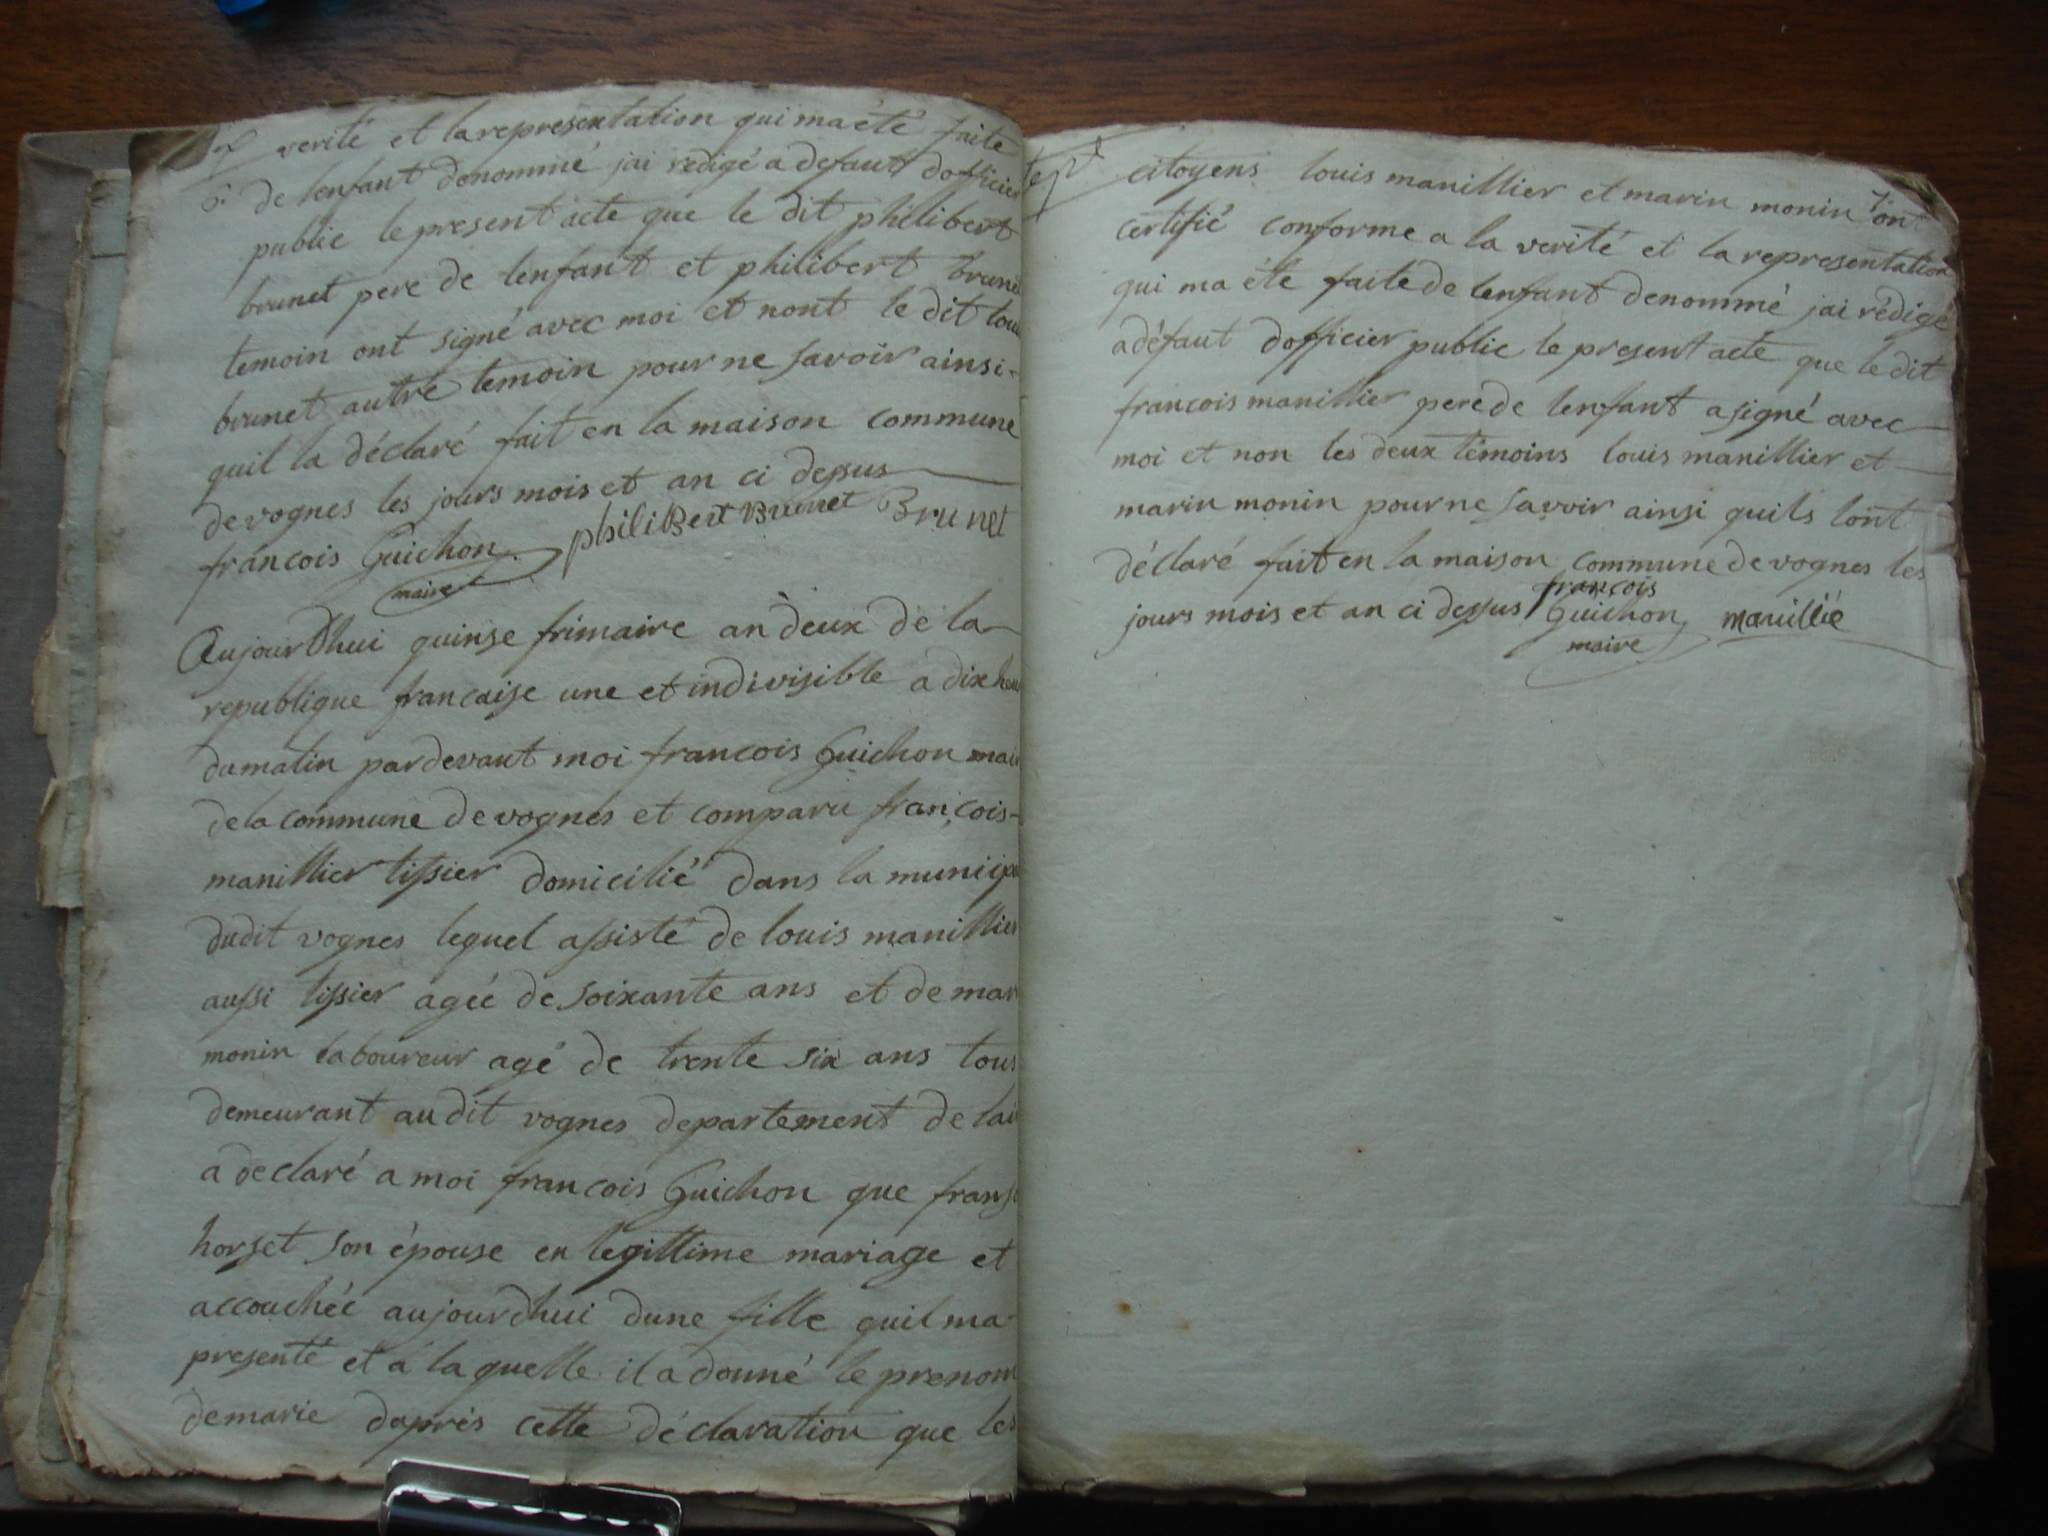 verité et la representation qui ma été faite
de lenfant denommé jai redigé a defaut dofficier
public le present acte que le dit philibert
brunet pere de lenfant et philibert brunet
temoin ont signé avec moi et nont le dit
brunet autre temoin pour ne savoir ainsi
quil la déclaré fait en la maison commune
de vognes les jours mois et an ci dessus
francois Guichon philibert Brunet Brunet
maire
Aujourdhui quinse frimaire an deux de la
republique francaise une et indivisible a dix
du matin par devant moi francois Guichon
de la commune de vognes et comparu françois
manillier tissier domicilié dans la
dudit vognes lequel assisté de louis manillier
aussi tissier ageé de soixante ans et de
monin laboureur agé de trente six ans tous
demeurant audit vognes departement de
a declaré a moi francois Guichon que
horset son épouse en legittime mariage et
accouchéé aujourdhui dune fille quil ma
presenté et a la quelle il a donné le prenom
de marie daprés cette déclaration que les
citoyens louis manillier et marin monin ont
certifié conforme a la verité et la representation
qui ma été faite de lenfant denommé jai rédigé
a défaut dofficier public le present acte que le dit
francois manillier pere de lenfant a signé avec
moi et non les deux témoins louis manillier et
marin monin pour ne savoir ainsi quils lont
déclaré fait en la maison commune de vognes les
jours mois et an ci dessus françois
Guichon manillié
maire